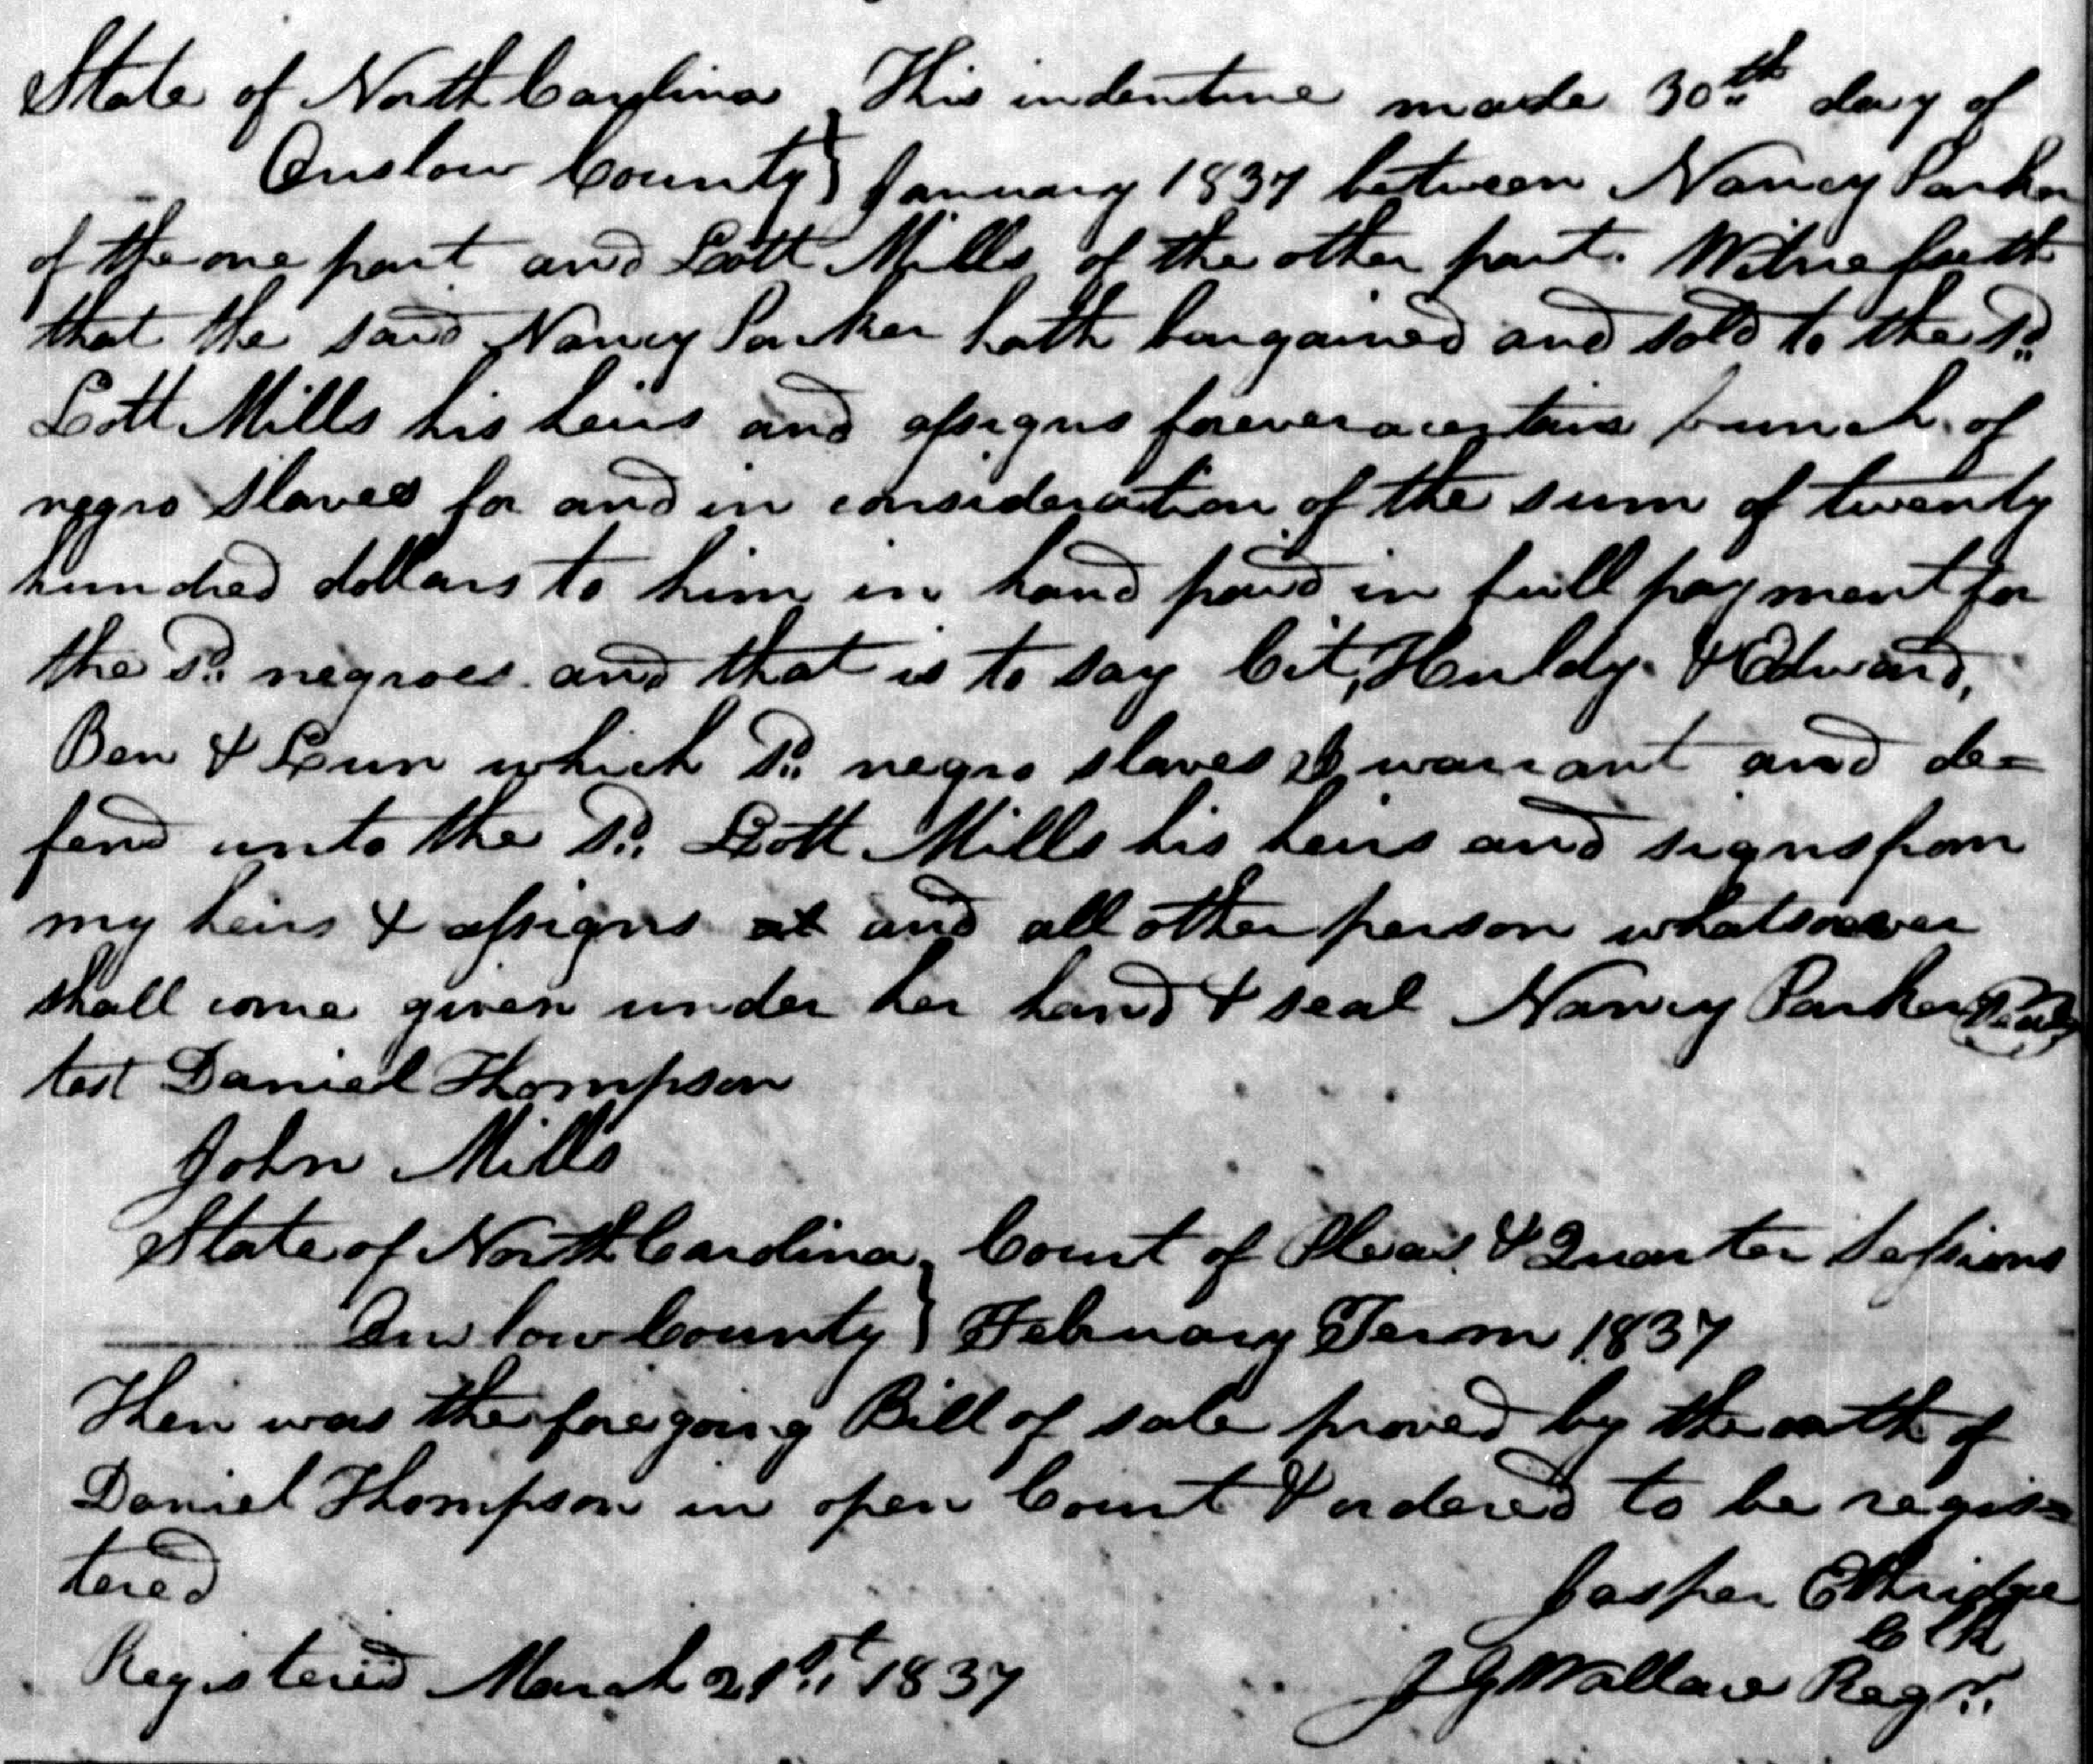 State of North Carolina } This indenture made 30th day of
Onslow County } January 1837 between Nancy Parker
of the one part and Lott Mills of the other part. Witnesseth
that the said Nancy Parker hath bargained and sold to the sd.
Lott Mills his heirs and assigns forever a certain bunch of
negro slaves for and in consideration of the sum of twenty
hundred dollars to him in hand paid in full payment for
the sd. negroes and that is to say Cit, Huldy & Edward,
Ben & Lun which sd. negro slaves I warrant and de=
fend unto the sd. Lott Mills his heirs and signs from
my heirs & assigns at and all other person whatsoever
shall come given under her hand & seal Nancy Parker (Seal)
test Daniel Thompson
John Mills
State of North Carolina } Court of Pleas & Quarter Sessions
Onslow County } February Term 1837
Then was the foregoing Bill of sale proved by the oath of
Daniel Thompson in open Court & ordered to be regis=
tered
Jasper Ethridge
Clk
Registered March 21st 1837 J G Wallace Regr.